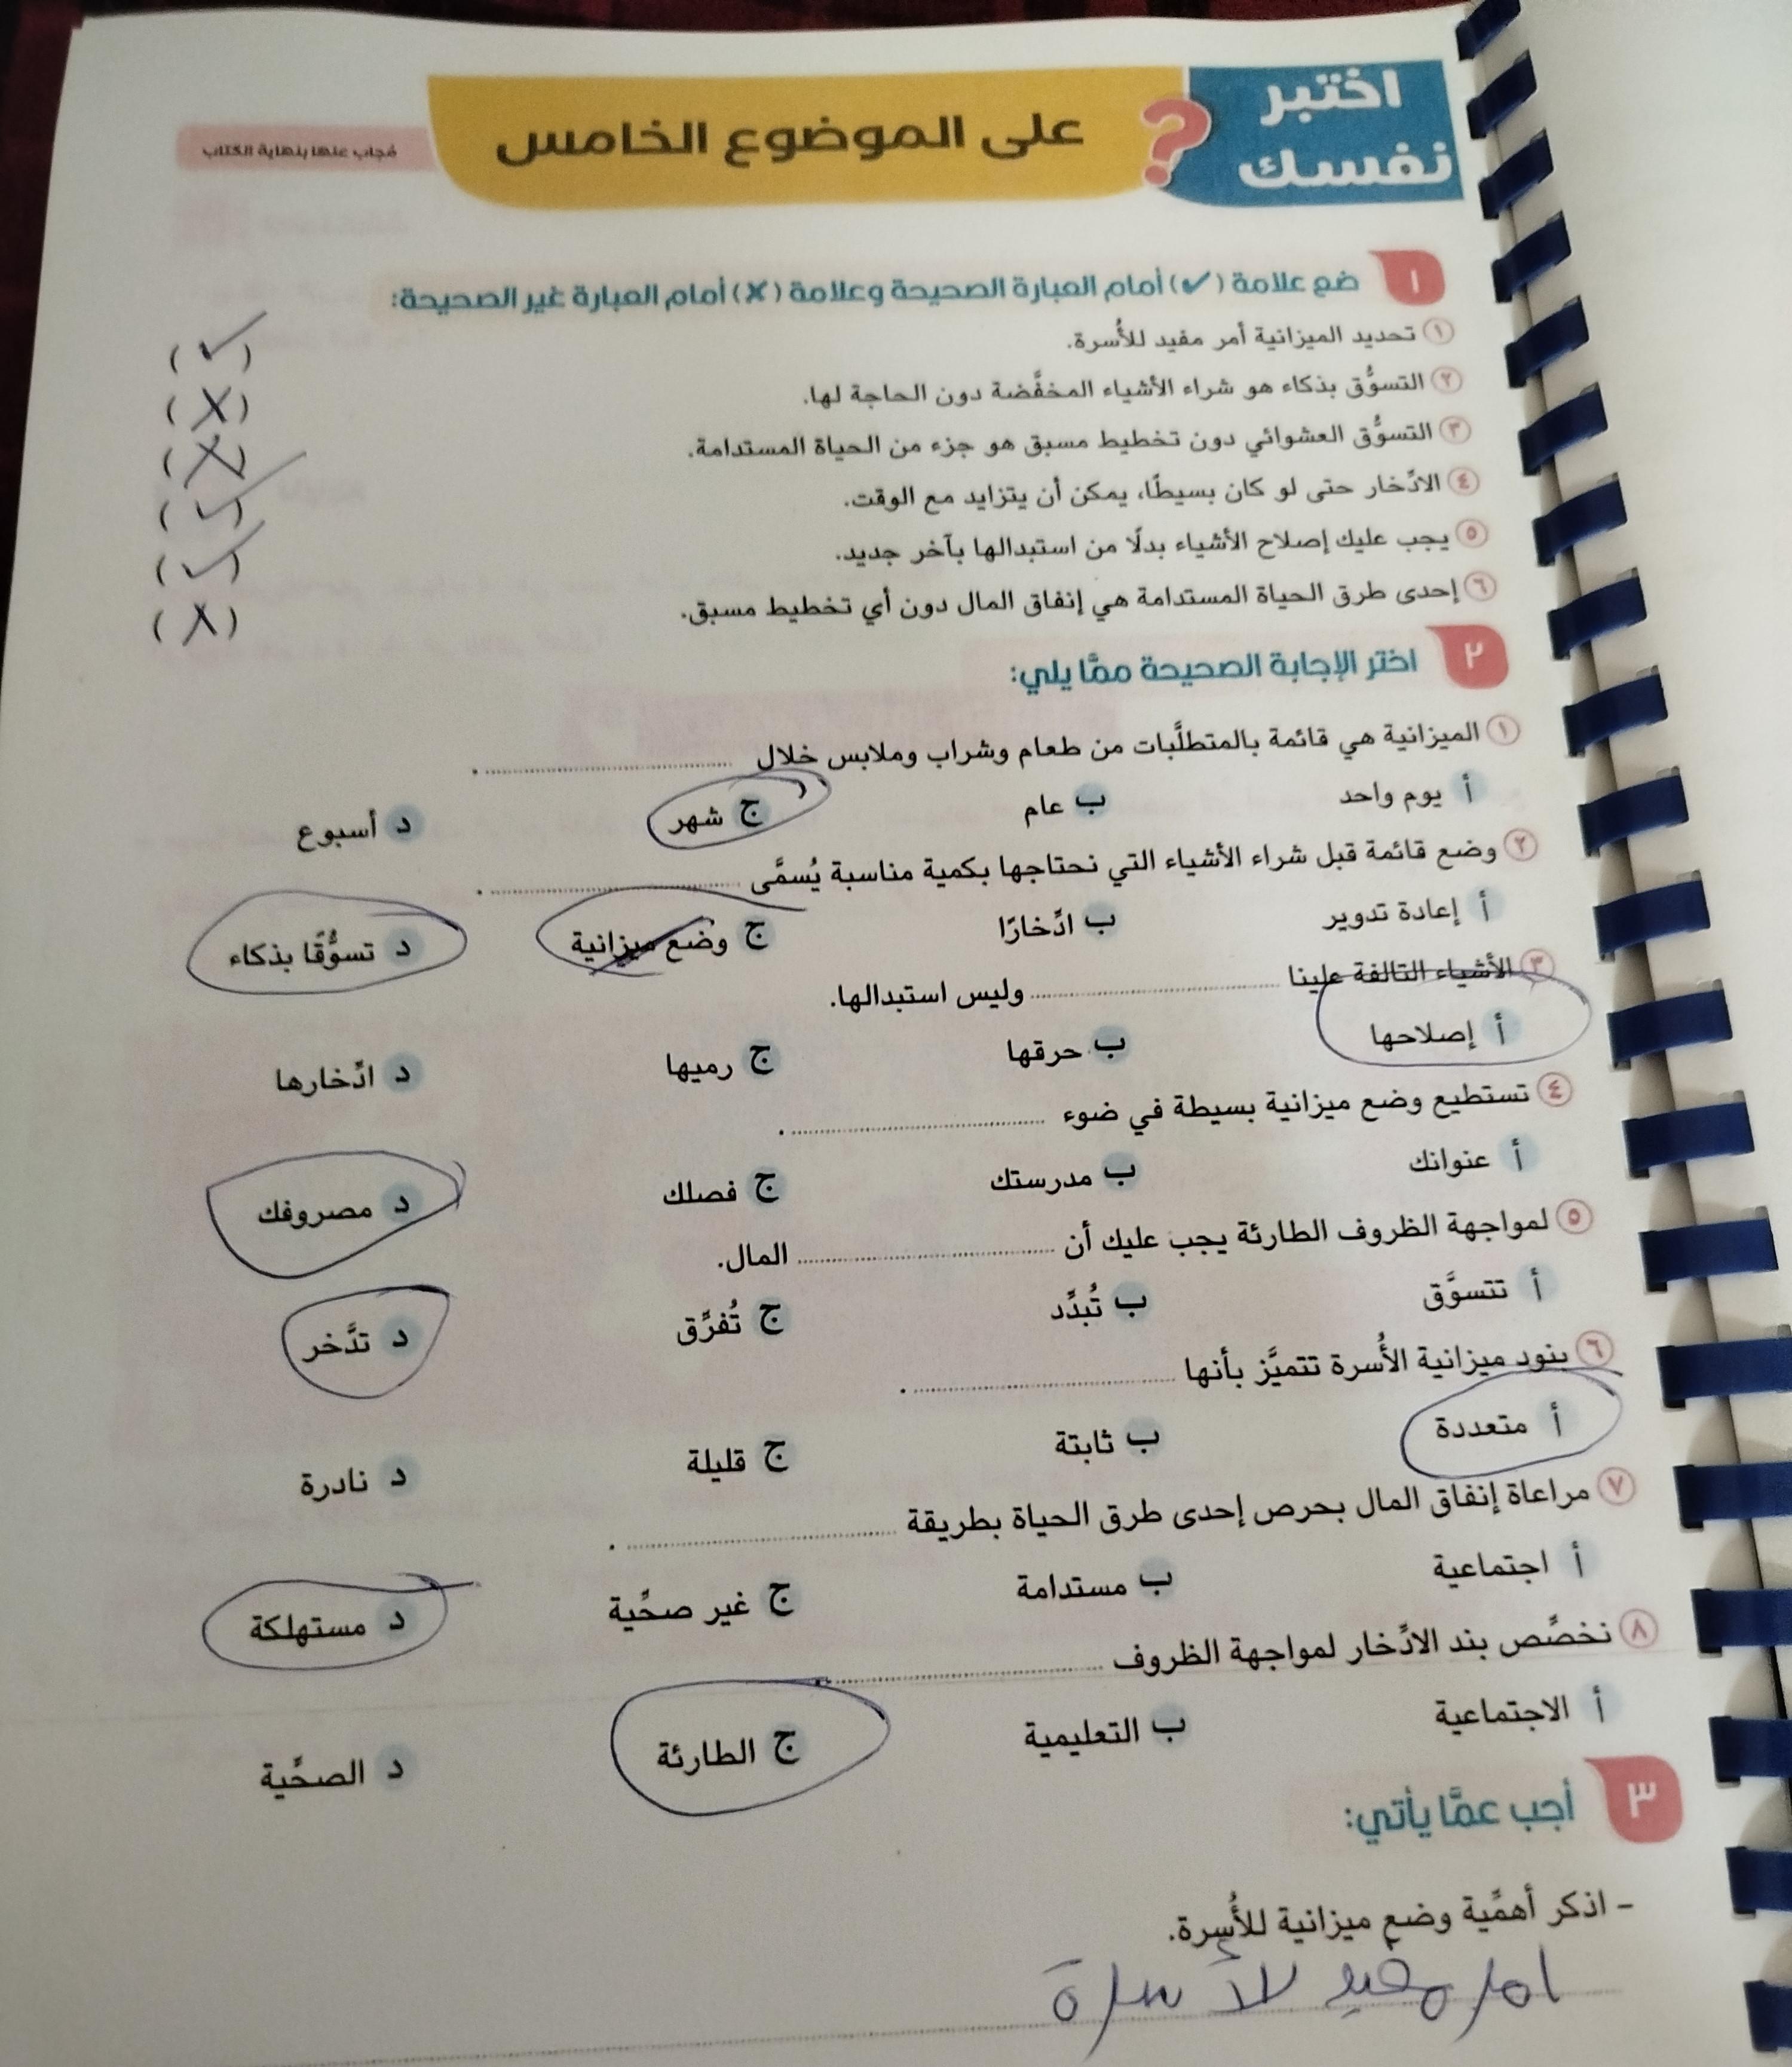 اختبر نفسك ? على الموضوع الخامس
مُجاب عنها بنهاية الكتاب
١ ضع علامة (✓) أمام العبارة الصحيحة وعلامة (✗) أمام العبارة غير الصحيحة:
١ تحديد الميزانية أمر مفيد للأُسرة. (✓)
٢ التسوُّق بذكاء هو شراء الأشياء المخفَّضة دون الحاجة لها. (X)
٣ التسوُّق العشوائي دون تخطيط مسبق هو جزء من الحياة المستدامة. (X)
٤ الادِّخار حتى لو كان بسيطًا، يمكن أن يتزايد مع الوقت. (✓)
٥ يجب عليك إصلاح الأشياء بدلًا من استبدالها بآخر جديد. (✓)
٦ إحدى طرق الحياة المستدامة هي إنفاق المال دون أي تخطيط مسبق. (X)
٢ اختر الإجابة الصحيحة ممَّا يلي:
١ الميزانية هي قائمة بالمتطلَّبات من طعام وشراب وملابس خلال .......................
أ يوم واحد ب عام ج شهر د أسبوع
٢ وضع قائمة قبل شراء الأشياء التي نحتاجها بكمية مناسبة يُسمَّى .......................
أ إعادة تدوير ب ادِّخارًا ج وضع ميزانية د تسوُّقًا بذكاء
٣ الأشياء التالفة علينا ....................... وليس استبدالها.
أ إصلاحها ب حرقها ج رميها د ادِّخارها
٤ تستطيع وضع ميزانية بسيطة في ضوء .......................
أ عنوانك ب مدرستك ج فصلك د مصروفك
٥ لمواجهة الظروف الطارئة يجب عليك أن ....................... المال.
أ تتسوَّق ب تُبدِّد ج تُفرِّق د تدَّخر
٦ بنود ميزانية الأُسرة تتميَّز بأنها .......................
أ متعددة ب ثابتة ج قليلة د نادرة
٧ مراعاة إنفاق المال بحرص إحدى طرق الحياة بطريقة .......................
أ اجتماعية ب مستدامة ج غير صحِّية د مستهلكة
٨ نخصِّص بند الادِّخار لمواجهة الظروف .......................
أ الاجتماعية ب التعليمية ج الطارئة د الصحِّية
٣ أجب عمَّا يأتي:
- اذكر أهمِّية وضع ميزانية للأُسرة.
امر مفيد للأسرة